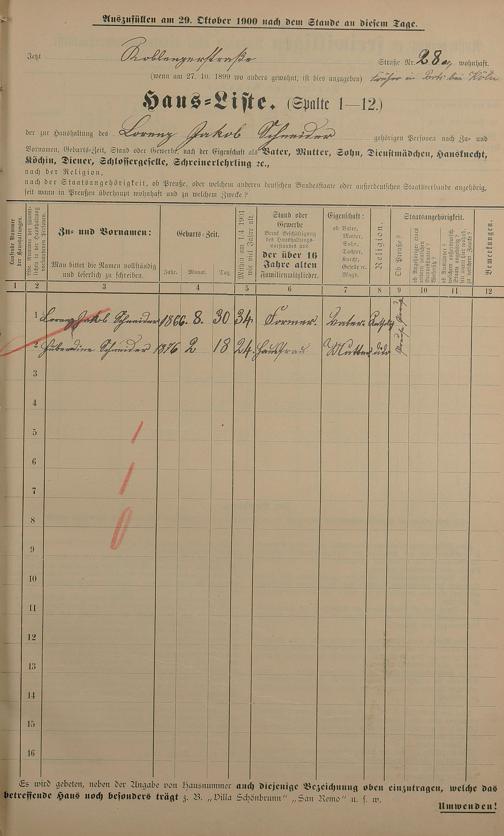 Auszufüllen am 29. Oktober 1900 nach dem Stande an diesem Tage.
Jetzt Koblenzerstraße Straße Nr. 28a, wohnhaft.
(wenn am 27. 10. 1899 wo anders gewohnt, ist dies anzugeben) bei Köln
Haus-Liste. (Spalte 1—12.)
der zur Haushaltung des Lorenz Jakob Schneider gehörigen Personen nach Zu- und
Vornamen, Geburts-Zeit, Stand oder Gewerbe, nach der Eigenschaft als Vater, Mutter, Sohn, Dienstmädchen, Hausknecht,
Köchin, Diener, Schlossergeselle, Schreinerlehrling ꝛc.,
nach der Religion,
nach der Staatsangehörigkeit, ob Preuße, oder welchem anderen deutschen Bundesstaate oder außerdeutschen Staatsverbande angehörig,
seit wann in Preußen überhaupt wohnhaft und zu welchem Zwecke?
Zu- und Vornamen:
Man bittet die Namen vollständig
und leserlich zu schreiben.
Geburts-Zeit.
Jahr. Monat. Tag.
Mithin am 1/4 1901
Stand oder
Gewerbe
der über 16
Jahre alten
Familienmitglieder.
Eigenschaft:
ob Vater,
Mutter,
Sohn,
Tochter,
Knecht,
Geselle,
Magd.
Religion.
Staatsangehörigkeit.
Ob Preuße?
Bemerkungen.
1 2 3 4 5 6 7 8 9 10 11 12
1 Lorenz Jakob Schneider 1866. 8. 30 34. Former. Vater.
2 Huberdine Schneider 1876 2 18 24. Hausfrau Mutter
3
4
5
6
7
8
9
10
11
12
13
14
15
16
1
1
0
Es wird gebeten, neben der Angabe von Hausnummer auch diejenige Bezeichnung oben einzutragen, welche das
betreffende Haus noch besonders trägt z. B. „Villa Schönbrunn" „San Remo" u. s. w.
Umwenden!